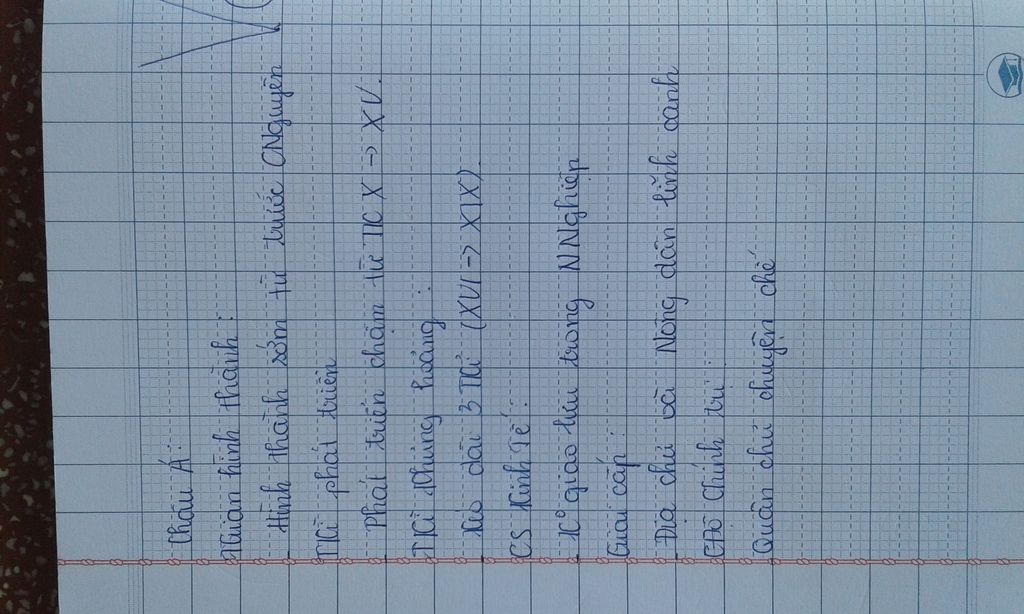 Châu Á:
Xuân hình thành:
Hình thành sớm từ trước CNguyên
TKì phát triển
Phát triển chậm từ TK X → XV.
TKì Khủng hoảng:
Kéo dài 3 TKỉ (XVI → XIX).
CS Kinh Tế:
K° giao lưu trong NNghiệp
Giai cấp:
Địa chủ và Nông dân lĩnh canh
CĐộ Chính trị:
Quân chủ chuyện chế